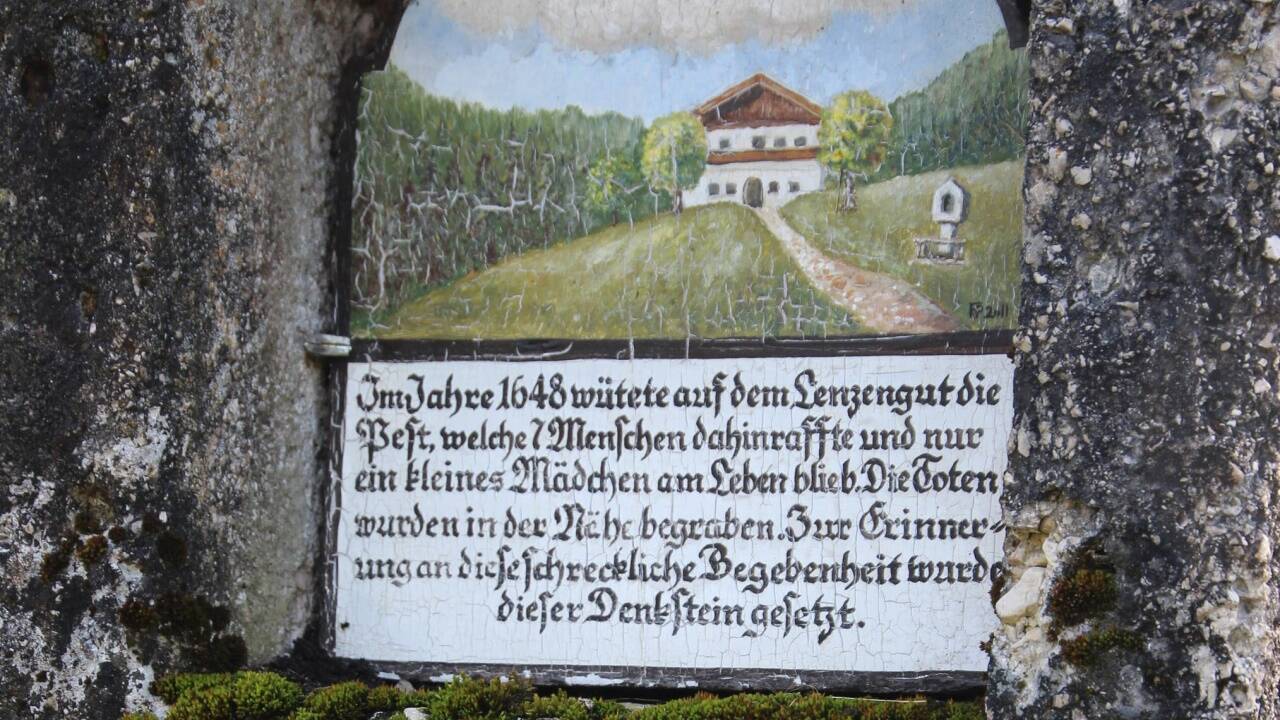 RP 2011
Im Jahre 1648 wütete auf dem Lenzengut die
Pest, welche 7 Menschen dahinraffte und nur
ein kleines Mädchen am Leben blieb. Die Toten
wurden in der Nähe begraben. Zur Erinner-
ung an diese schreckliche Begebenheit wurde
dieser Denkstein gesetzt.